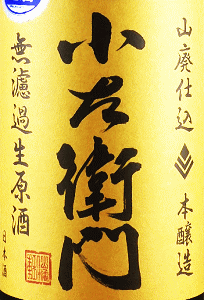 山廃仕込
本醸造
小左衛門
無濾過生原酒
日本酒